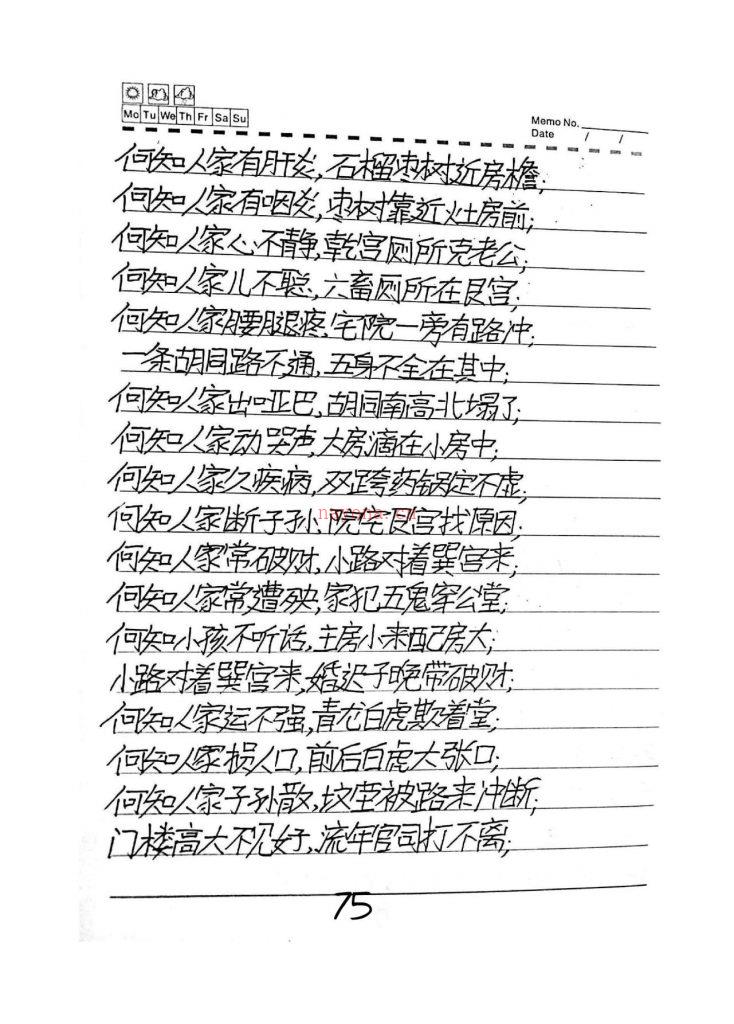 Mo Tu We Th Fr Sa Su
Memo No.
Date / /
何知人家有肝炎,石榴枣树近房檐;
何知人家有咽炎,枣树靠近灶房前;
何知人家心不静,乾宫厕所克老公;
何知人家儿不聪,六畜厕所在艮宫;
何知人家腰腿疼,宅院一旁有路冲;
一条胡同路不通,五身不全在其中;
何知人家出哑巴,胡同南高北塌了;
何知人家动哭声,大房滴在小房中;
何知人家久疾病,双跨药锅定不虚;
何知人家断子孙,院宅艮宫找原因;
何知人家常破财,小路对着巽宫来;
何知人家常遭殃,家犯五鬼穿公堂;
何知小孩不听话,主房小来配房大;
小路对着巽宫来,婚迟子晚带破财;
何知人家运不强,青龙白虎欺着堂;
何知人家损人口,前后白虎大张口;
何知人家子孙散,坟茔被路来冲断;
门楼高大不见好,流年官司打不离;
75